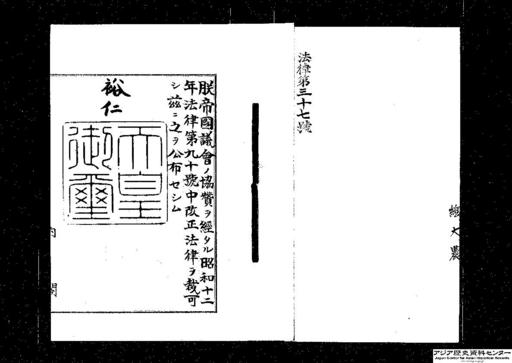 法律第三十七號
總大農
朕帝國議會ノ協贊ヲ經タル昭和十二
年法律第九十號中改正法律ヲ裁可
シ茲ニ之ヲ公布セシム
裕仁
天皇
御璽
内閣
アジア歴史資料センター
Japan Center for Asian Historical Records